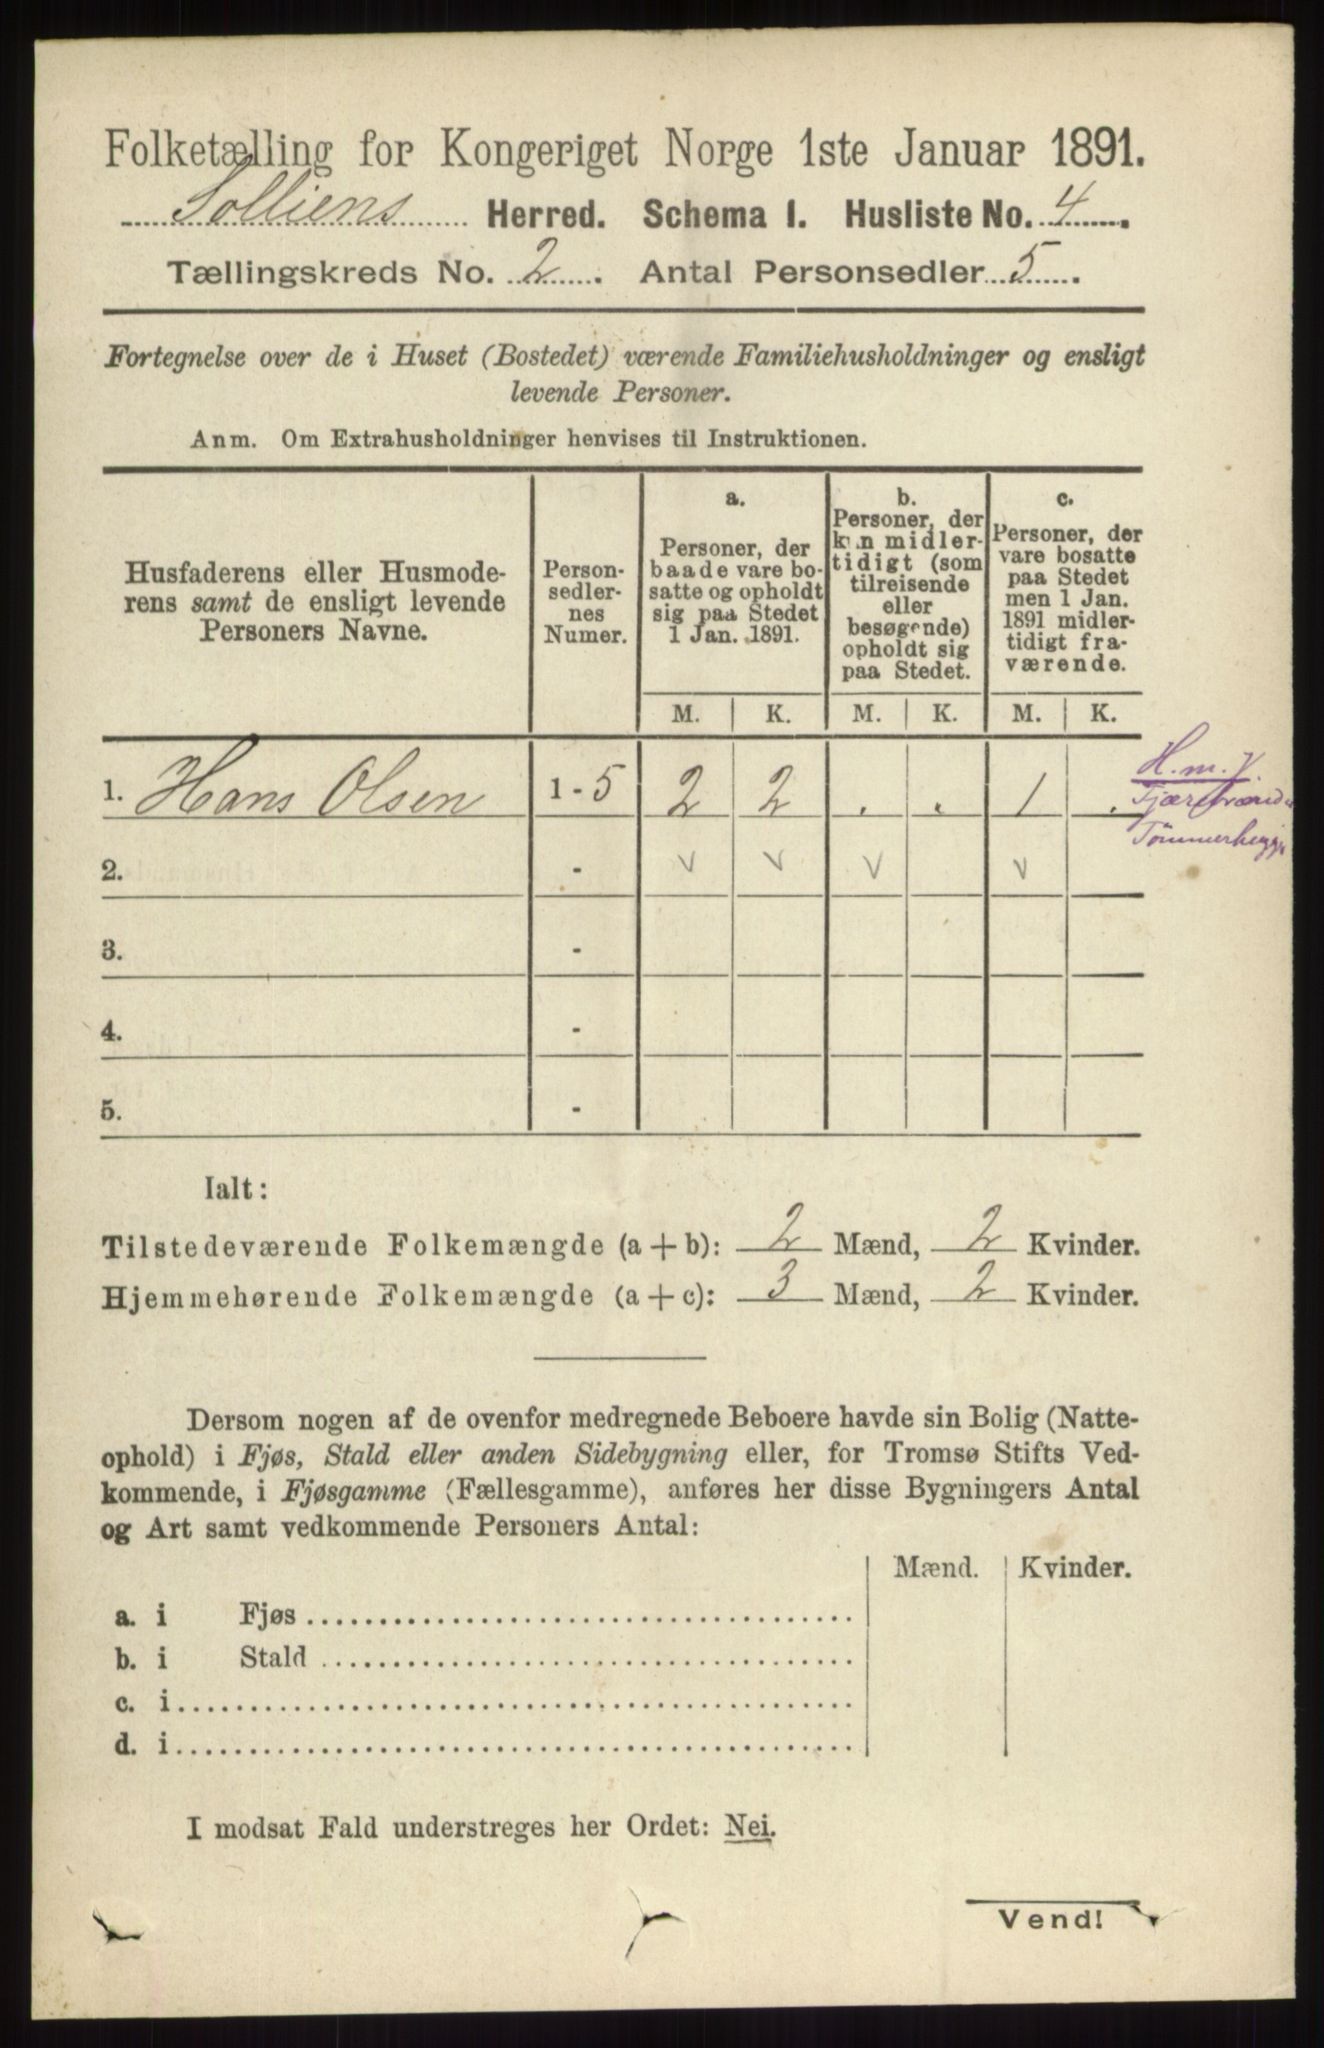 Folketælling for Kongeriget Norge 1ste Januar 1891.
Solliens Herred. Schema I. Husliste No. 4.
Tællingskreds No. 2. Antal Personsedler 5.
Fortegnelse over de i Huset (Bostedet) værende Familiehusholdninger og ensligt
levende Personer.
Anm. Om Extrahusholdninger henvises til Instruktionen.
Husfaderens eller Husmode-
rens samt de ensligt levende
Personers Navne.
Person-
sedler-
nes
Numer.
a.
Personer, der
baade vare bo-
satte og opholdt
sig paa Stedet
1 Jan. 1891.
b.
Personer, der
kun midler-
tidigt (som
tilreisende
eller
besøgende)
opholdt sig
paa Stedet.
c.
Personer, der
vare bosatte
paa Stedet
men 1 Jan.
1891 midler-
tidigt fra-
værende.
M. K. M. K. M. K.
1. Hans Olsen 1 - 5 2 2 . . 1 .
H. m. V.
Tømmerhugge
2. - v v v v
3. -
4. -
5. -
Ialt:
Tilstedeværende Folkemængde (a + b): 2 Mænd, 2 Kvinder.
Hjemmehørende Folkemængde (a + c): 3 Mænd, 2 Kvinder.
Dersom nogen af de ovenfor medregnede Beboere havde sin Bolig (Natte-
ophold) i Fjøs, Stald eller anden Sidebygning eller, for Tromsø Stifts Ved-
kommende, i Fjøsgamme (Fællesgamme), anføres her disse Bygningers Antal
og Art samt vedkommende Personers Antal:
Mænd. Kvinder.
a. i Fjøs
b. i Stald
c. i
d. i
I modsat Fald understreges her Ordet: Nei.
Vend!